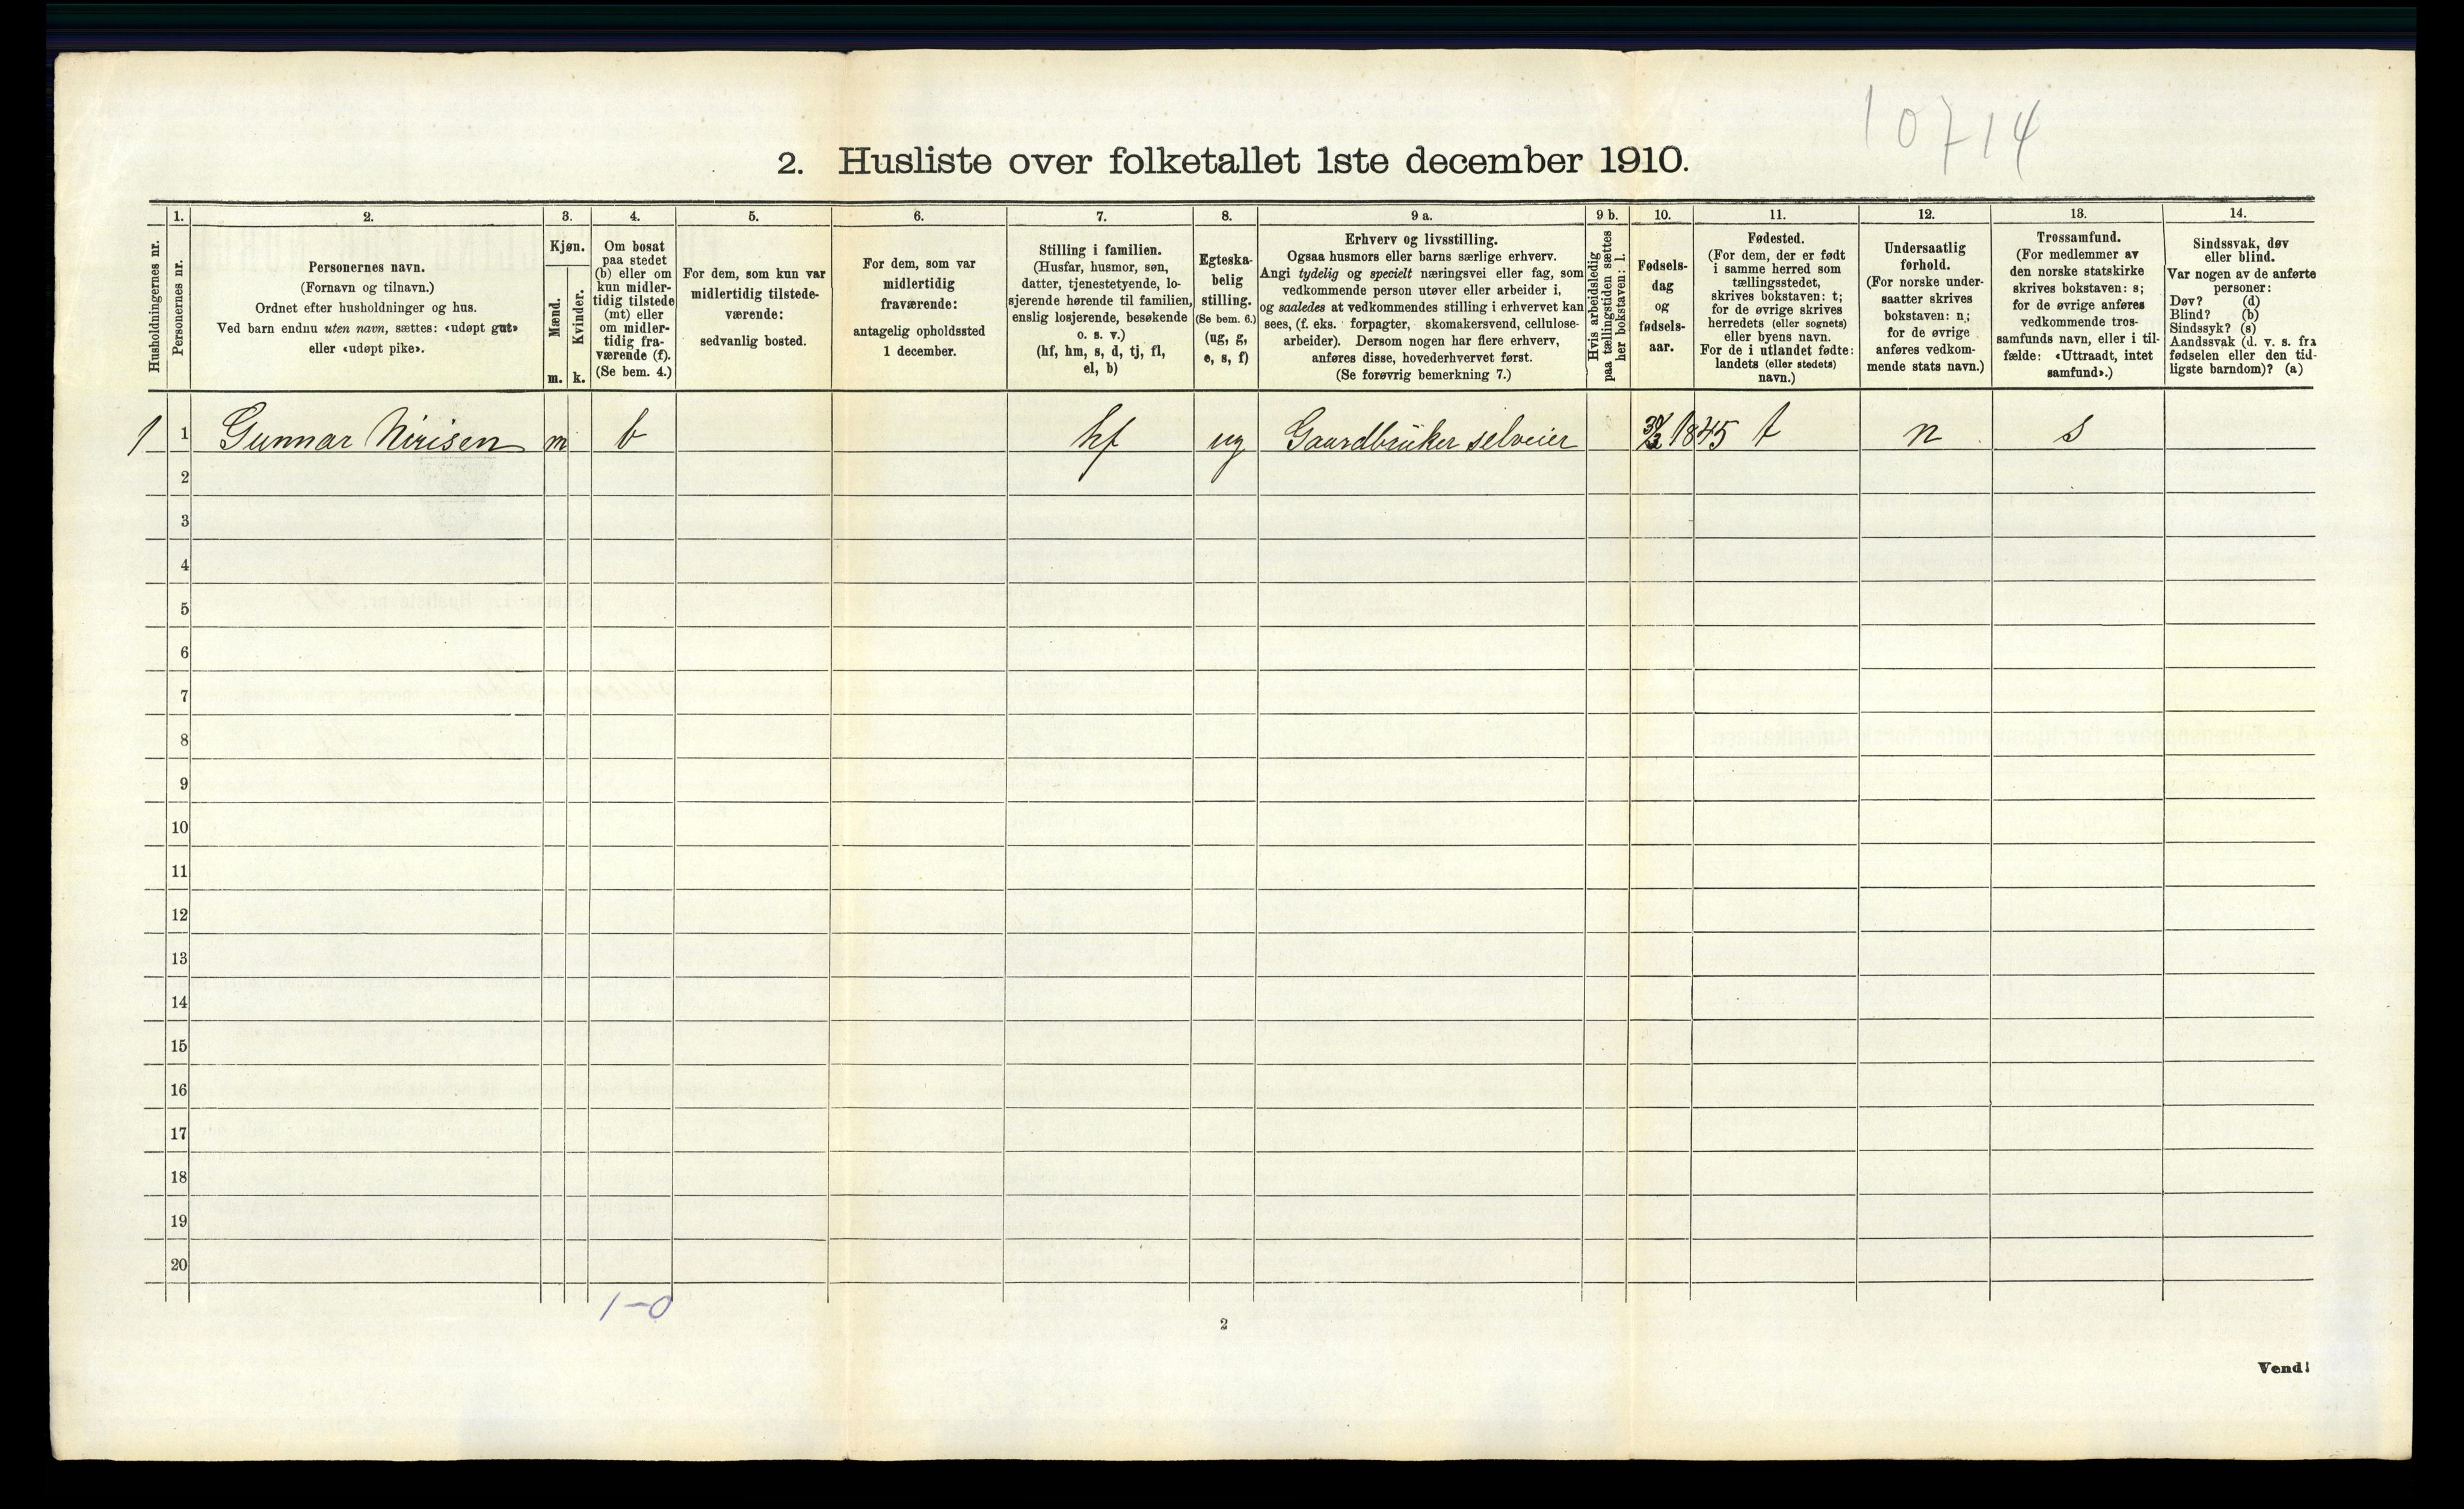 10714
2. Husliste over folketallet 1ste december 1910.
Husholdningernes nr.
1.
Personernes nr.
2.
Personernes navn.
(Fornavn og tilnavn.)
Ordnet efter husholdninger og hus.
Ved barn endnu uten navn, sættes: «udøpt gut»
eller «udøpt pike».
3.
Kjøn.
Mænd.
m.
Kvinder.
k.
4.
Om bosat
paa stedet
(b) eller om
kun midler-
tidig tilstede
(mt) eller
om midler-
tidig fra-
værende (f).
(Se bem. 4.)
5.
For dem, som kun var
midlertidig tilstede-
værende:
sedvanlig bosted.
6.
For dem, som var
midlertidig
fraværende:
antagelig opholdssted
1 december.
7.
Stilling i familien.
(Husfar, husmor, søn,
datter, tjenestetyende, lo-
sjerende hørende til familien,
enslig losjerende, besøkende
o. s. v.)
(hf, hm, s, d, tj, fl,
el, b)
8.
Egteska-
belig
stilling.
(Se bem. 6.)
(ug, g,
e, s, f)
9 a.
Erhverv og livsstilling.
Ogsaa husmors eller barns særlige erhverv.
Angi tydelig og specielt næringsvei eller fag, som
vedkommende person utøver eller arbeider i,
og saaledes at vedkommendes stilling i erhvervet kan
sees, (f. eks. forpagter, skomakersvend, cellulose-
arbeider). Dersom nogen har flere erhverv,
anføres disse, hovederhvervet først.
(Se forøvrig bemerkning 7.)
9 b.
Hvis arbeidsledig
paa tællingstiden sættes
her bokstaven: l.
10.
Fødsels-
dag
og
fødsels-
aar.
11.
Fødested.
(For dem, der er født
i samme herred som
tællingsstedet,
skrives bokstaven: t;
for de øvrige skrives
herredets (eller sognets)
eller byens navn.
For de i utlandet fødte:
landets (eller stedets)
navn.)
12.
Undersaatlig
forhold.
(For norske under-
saatter skrives
bokstaven: n;
for de øvrige
anføres vedkom-
mende stats navn.)
13.
Trossamfund.
(For medlemmer av
den norske statskirke
skrives bokstaven: s;
for de øvrige anføres
vedkommende tros-
samfunds navn, eller i til-
fælde: «Uttraadt, intet
samfund».)
14.
Sindssvak, døv
eller blind.
Var nogen av de anførte
personer:
Døv? (d)
Blind? (b)
Sindssyk? (s)
Aandssvak (d. v. s. fra
fødselen eller den tid-
ligste barndom)? (a)
1 1 Gunnar Nirisen m b hf ug Gaardbruker selveier 1845 t n s
2
3
4
5
6
7
8
9
10
11
12
13
14
15
16
17
18
19
20
1-0
2
Vend!